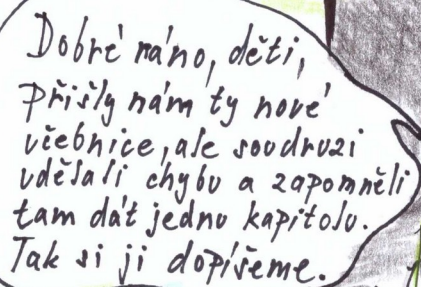 Dobré ráno, děti,
přišly nám ty nové
učebnice, ale soudruzi
udělali chybu a zapomněli
tam dát jednu kapitolu.
Tak si ji dopíšeme.